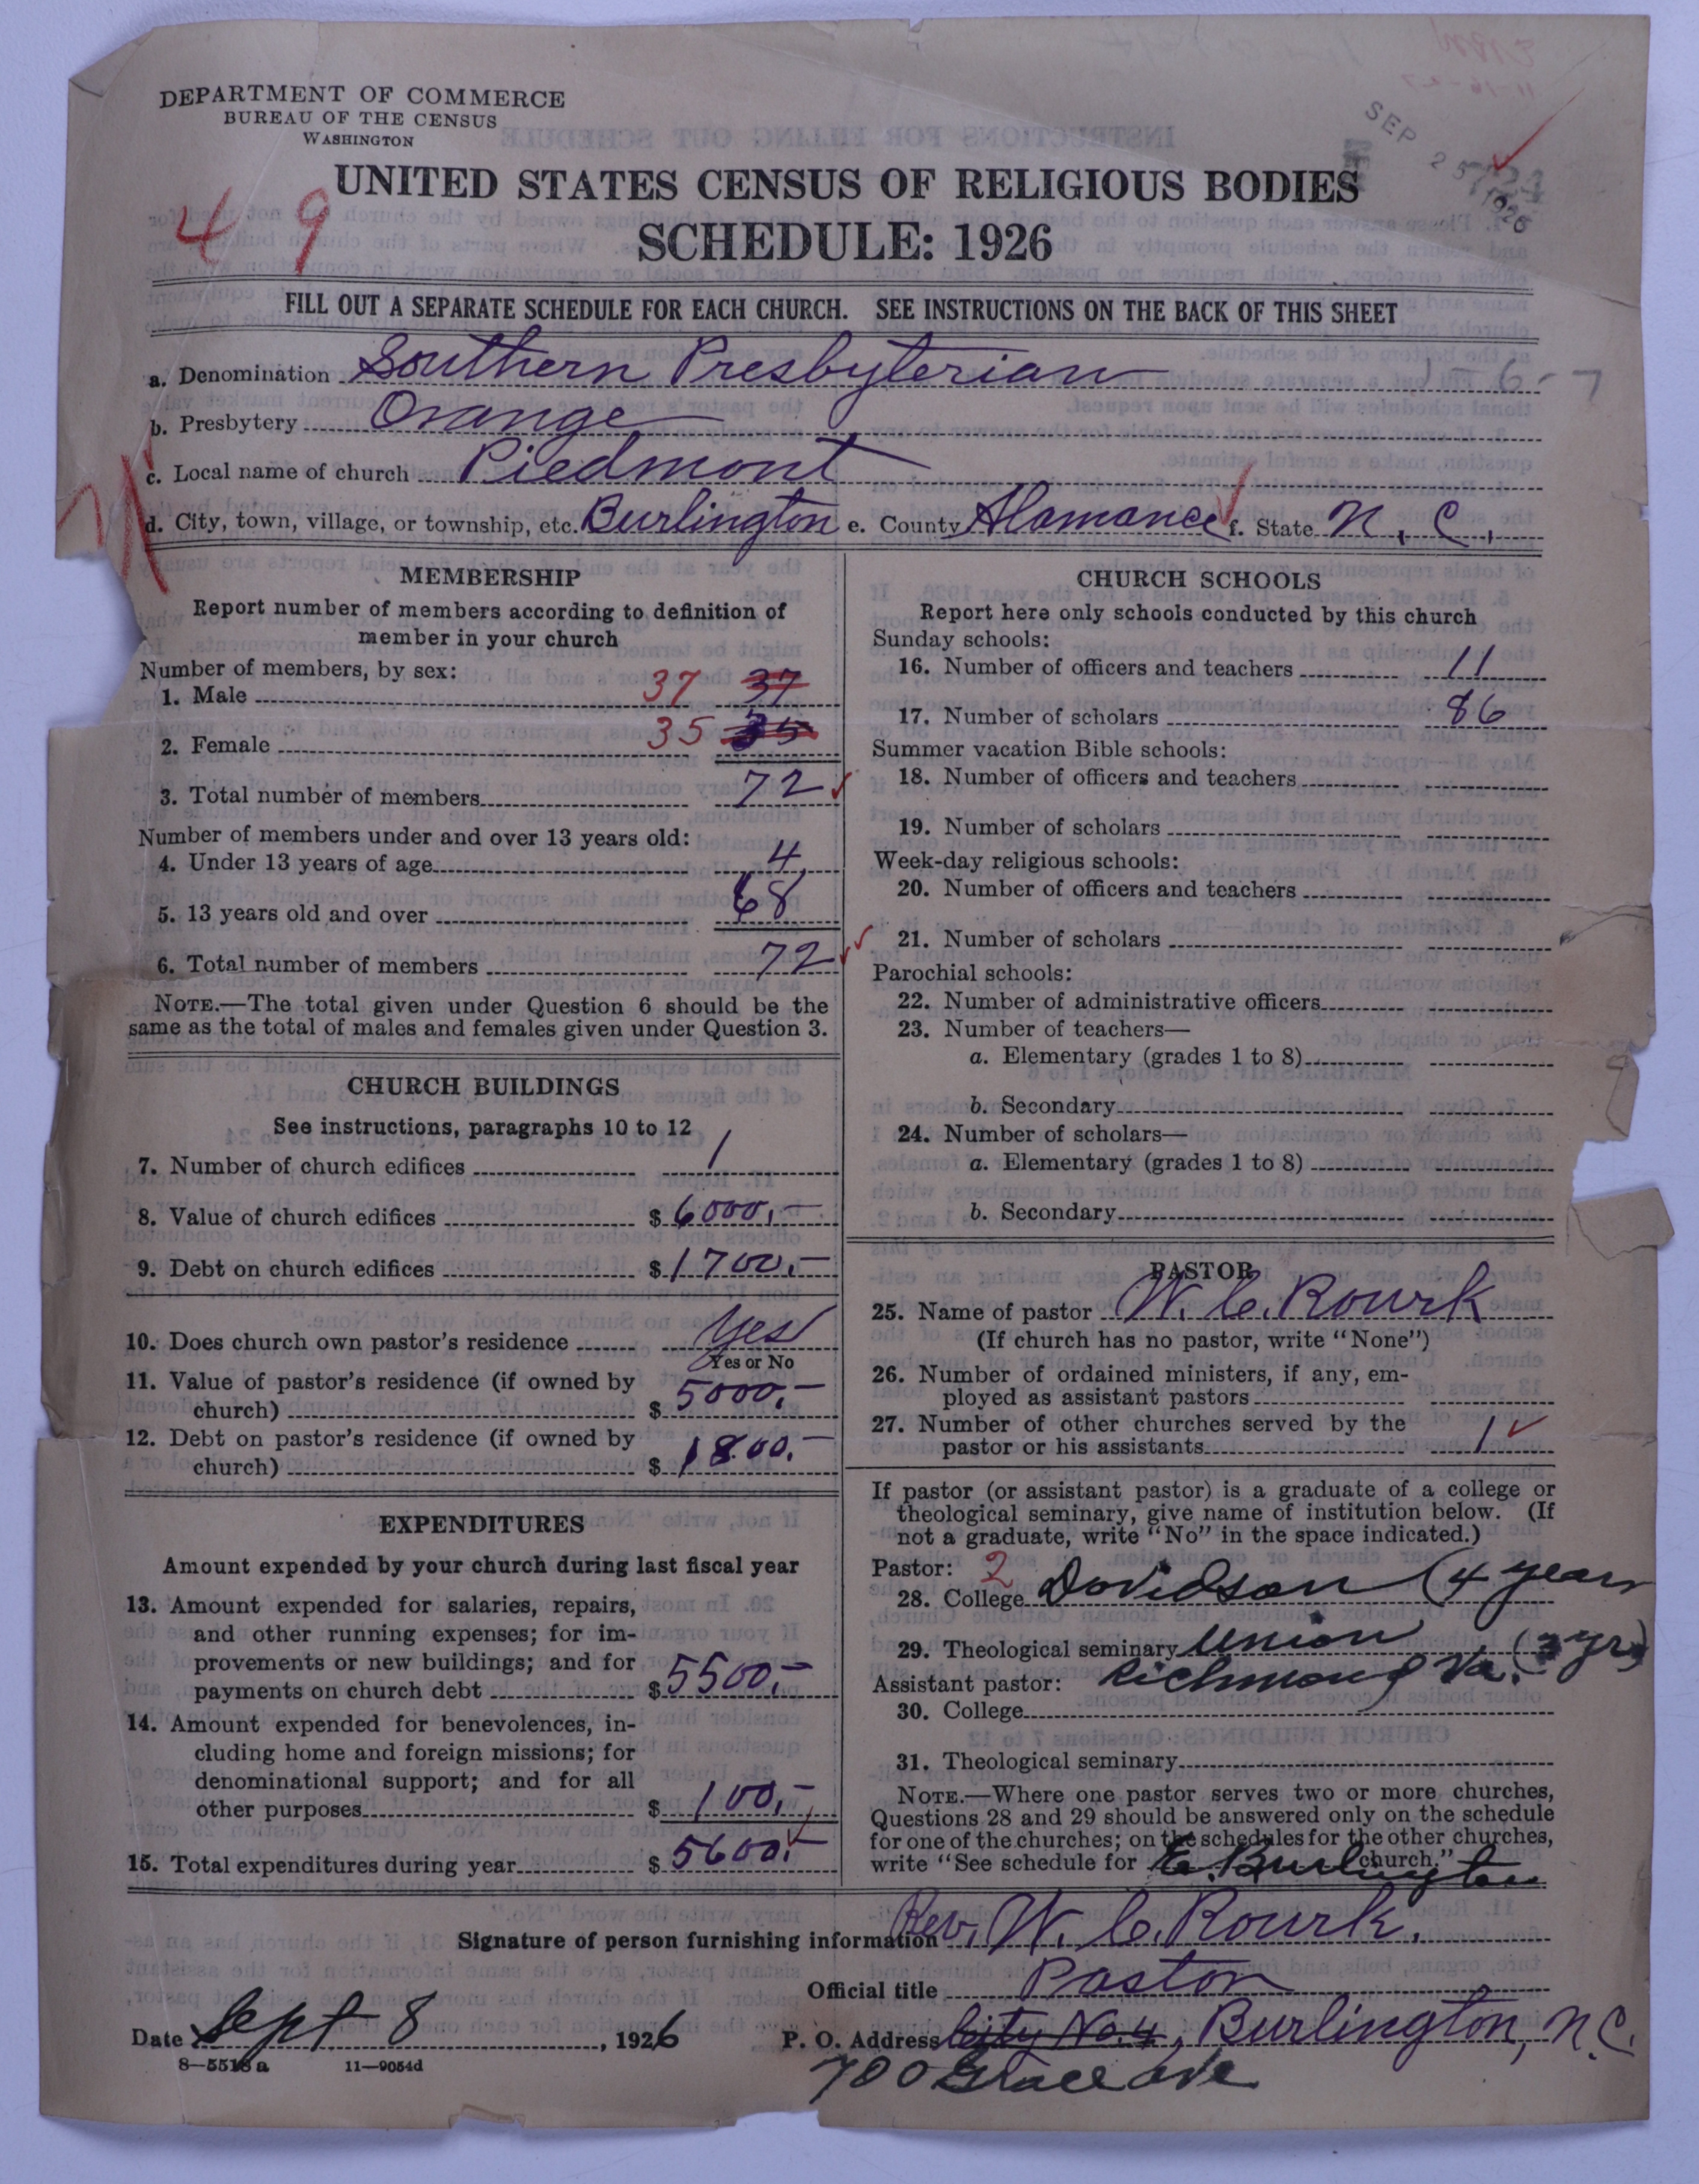 DEPARTMENT OF COMMERCE
BUREAU OF THE CENSUS
WASHINGTON
SEP 25 1926
UNITED STATES CENSUS OF RELIGIOUS BODIES
4 9
SCHEDULE: 1926
FILL OUT A SEPARATE SCHEDULE FOR EACH CHURCH. SEE INSTRUCTIONS ON THE BACK OF THIS SHEET
a. Denomination Southern Presbyterian 1-6-7
b. Presbytery Orange
c. Local name of church Piedmont
d. City, town, village, or township, etc. Burlington e. County Alamance f. State N. C.
MEMBERSHIP
Report number of members according to definition of
member in your church
Number of members, by sex:
1. Male 37 37
2. Female 35 35
3. Total number of members 72
Number of members under and over 13 years old:
4. Under 13 years of age 4
5. 13 years old and over 68
6. Total number of members 72
NOTE.—The total given under Question 6 should be the
same as the total of males and females given under Question 3.
CHURCH BUILDINGS
See instructions, paragraphs 10 to 12
7. Number of church edifices 1
8. Value of church edifices $ 6000.-
9. Debt on church edifices $ 1700.-
10. Does church own pastor's residence Yes
Yes or No
11. Value of pastor's residence (if owned by
church) $ 5000.-
12. Debt on pastor's residence (if owned by
church) $ 1800.-
EXPENDITURES
Amount expended by your church during last fiscal year
13. Amount expended for salaries, repairs,
and other running expenses; for im-
provements or new buildings; and for
payments on church debt $ 5500.-
14. Amount expended for benevolences, in-
cluding home and foreign missions; for
denominational support; and for all
other purposes $ 100.-
15. Total expenditures during year $ 5600.-
CHURCH SCHOOLS
Report here only schools conducted by this church
Sunday schools:
16. Number of officers and teachers 11
17. Number of scholars 86
Summer vacation Bible schools:
18. Number of officers and teachers
19. Number of scholars
Week-day religious schools:
20. Number of officers and teachers
21. Number of scholars
Parochial schools:
22. Number of administrative officers
23. Number of teachers—
a. Elementary (grades 1 to 8)
b. Secondary
24. Number of scholars—
a. Elementary (grades 1 to 8)
b. Secondary
PASTOR
25. Name of pastor W. C. Rourk
(If church has no pastor, write "None")
26. Number of ordained ministers, if any, em-
ployed as assistant pastors
27. Number of other churches served by the
pastor or his assistants 1
If pastor (or assistant pastor) is a graduate of a college or
theological seminary, give name of institution below. (If
not a graduate, write "No" in the space indicated.)
Pastor: 2
28. College Davidson (4 years
29. Theological seminary Union (3 yrs)
Assistant pastor: Richmond Va.
30. College
31. Theological seminary
NOTE.—Where one pastor serves two or more churches,
Questions 28 and 29 should be answered only on the schedule
for one of the churches; on the schedules for the other churches,
write "See schedule for E. Burlington church."
Signature of person furnishing information Rev. W. C. Rourk.
Official title Pastor
Date Sept 8, 1926 P. O. Address City No. 4, Burlington, N.C.
8—5518a 11—9054d
700 Grace Ave